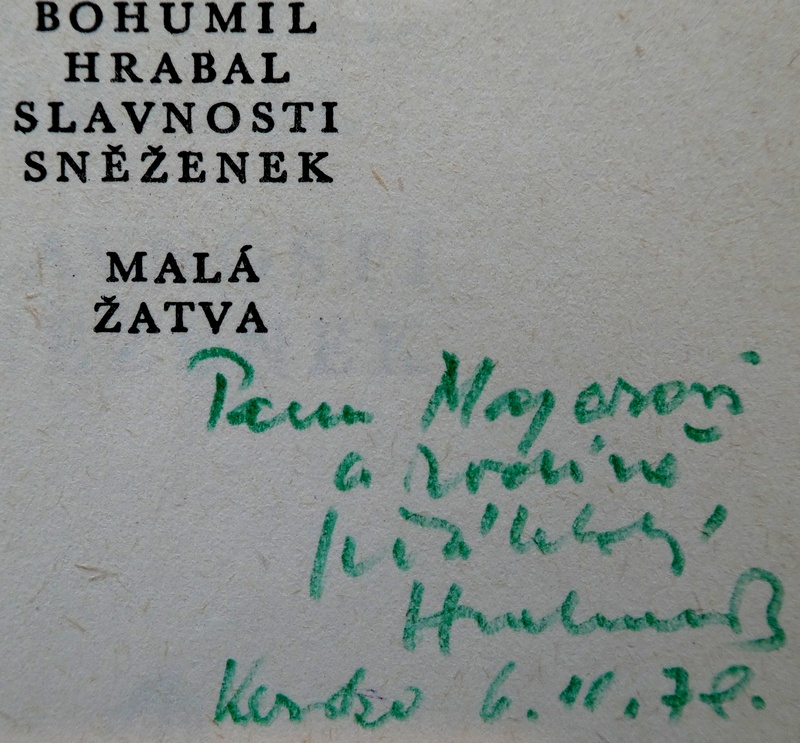 BOHUMIL
HRABAL
SLAVNOSTI
SNĚŽENEK
MALÁ
ŽATVA
Panu Majerovi
a rodině
přátelský
Hrabal B
Kersko 6. 11. 78.